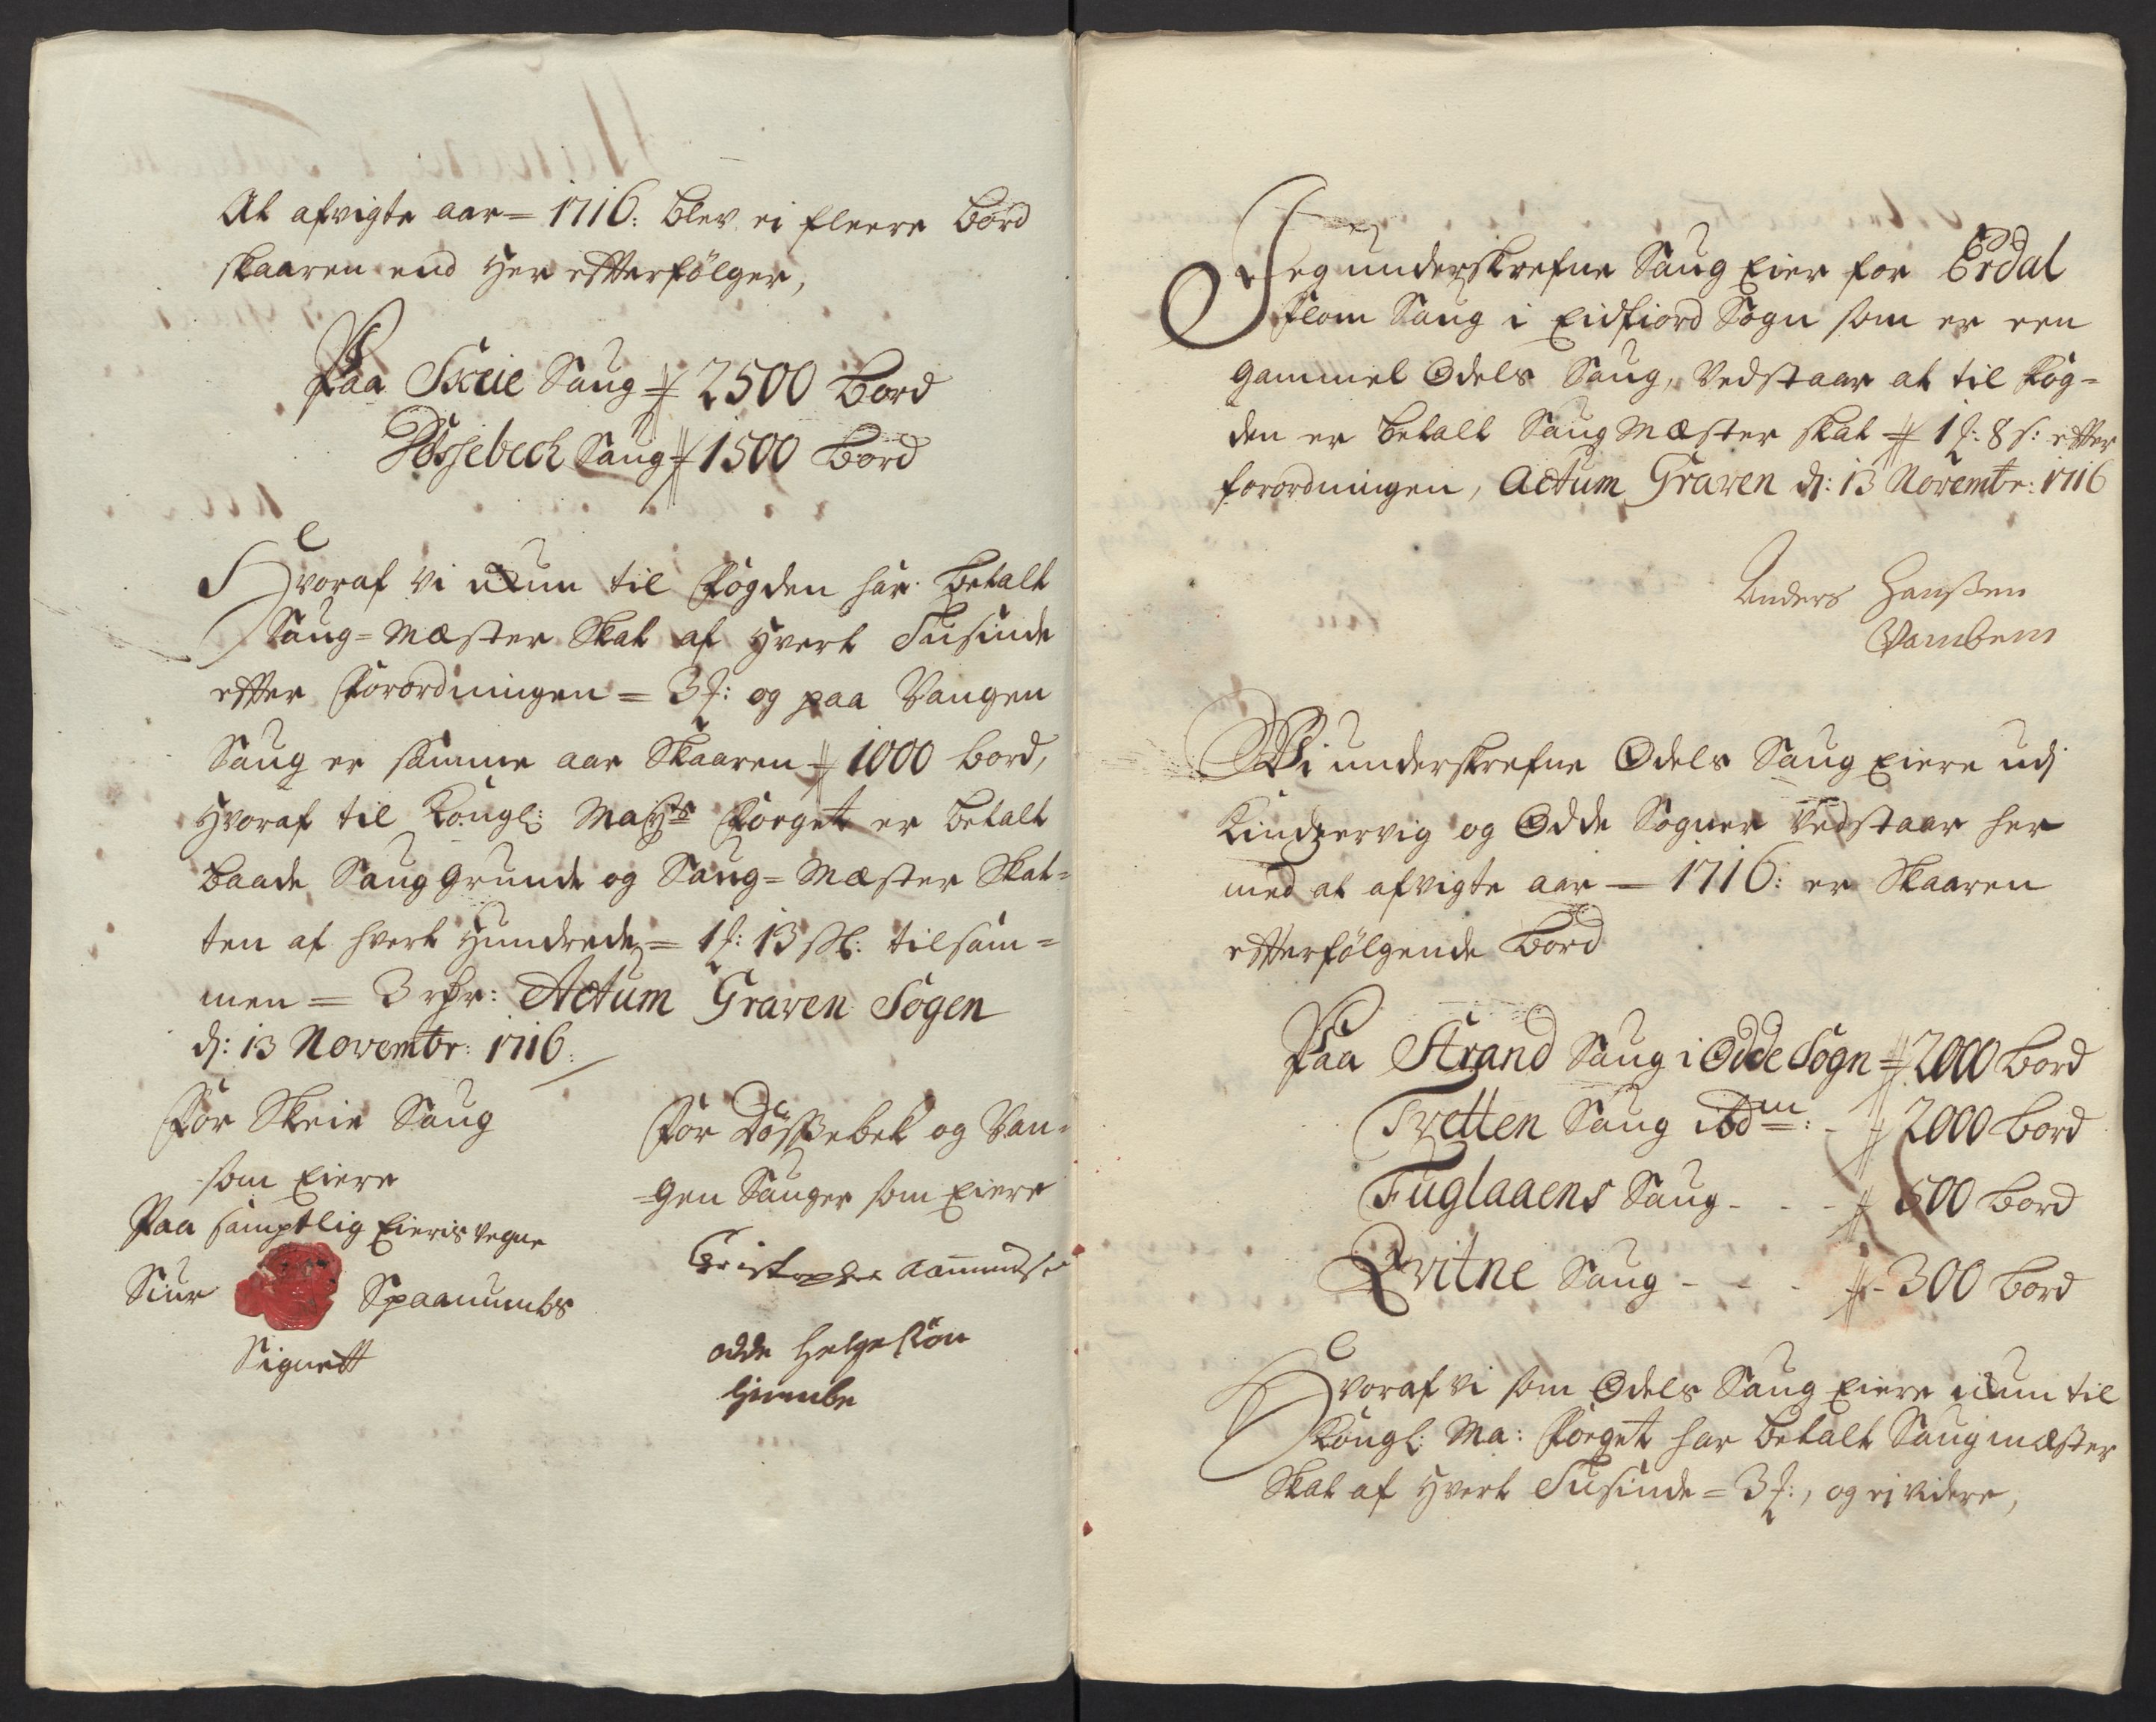 At afvigte aar = 1716: blev ei fleere bord
skaaren end Her efterfölger,
Paa Skeie Saug 2500 Bord
Dössebech Saug 1500 Bord
Hvoraf vi ickun til Fogden har betalt
Saug=Mæster Skat af Hvert Tusinde
efter Forordningen = 3 : og paa Vangen
Saug er samme aar Skaaren 1000 bord,
Hvoraf til Kongl: Mayts Forget er betalt
baade Saug Grunde og Saug=Mæster Skat=
ten af hvert Hundrede = 1 : 13 sk: tilsam=
men = 3 rdr: Actum Graven Sogen
d: 13 Novembr: 1716.
For Skeie Saug
som Eiere
Paa samptlig Eieris vegne
Siur Spaanumbs
Signett
For Dössebek og Van=
=gen Sauger som Eiere
Christopher Aamundse
odde Helgesøn
Hjimbe
Jeg underskrefne Saug Eier for Erdal
Flom Saug i Eidfiord Sogn som er een
gammel Odels Saug, Vedstaar at til Fog=
den er betalt Saug Mæster skat 1 : 8 s: efter
forordningen, Actum Graven d: 13 Novembr: 1716
Anders Hanssen
Vambem
Wi underskrefne Odels Saug Eiere udj
Kindzervig og Odde Sogner Vedstaar her
med at afvigte aar = 1716: er Skaaren
efterfölgende Bord
Paa Strand Saug i Odde Sogn 2000 Bord
Tvetten Saug ibdm: - 2000 Bord
Fuglaaens Saug - - - 500 Bord
Qvitne Saug - - - 300 Bord
Hvoraf vi som Odels Saug Eiere ickun til
Kongl: Ma: Forget har betalt Saugmæster
Skat af Hvert Tusinde = 3 :, og ej videre,